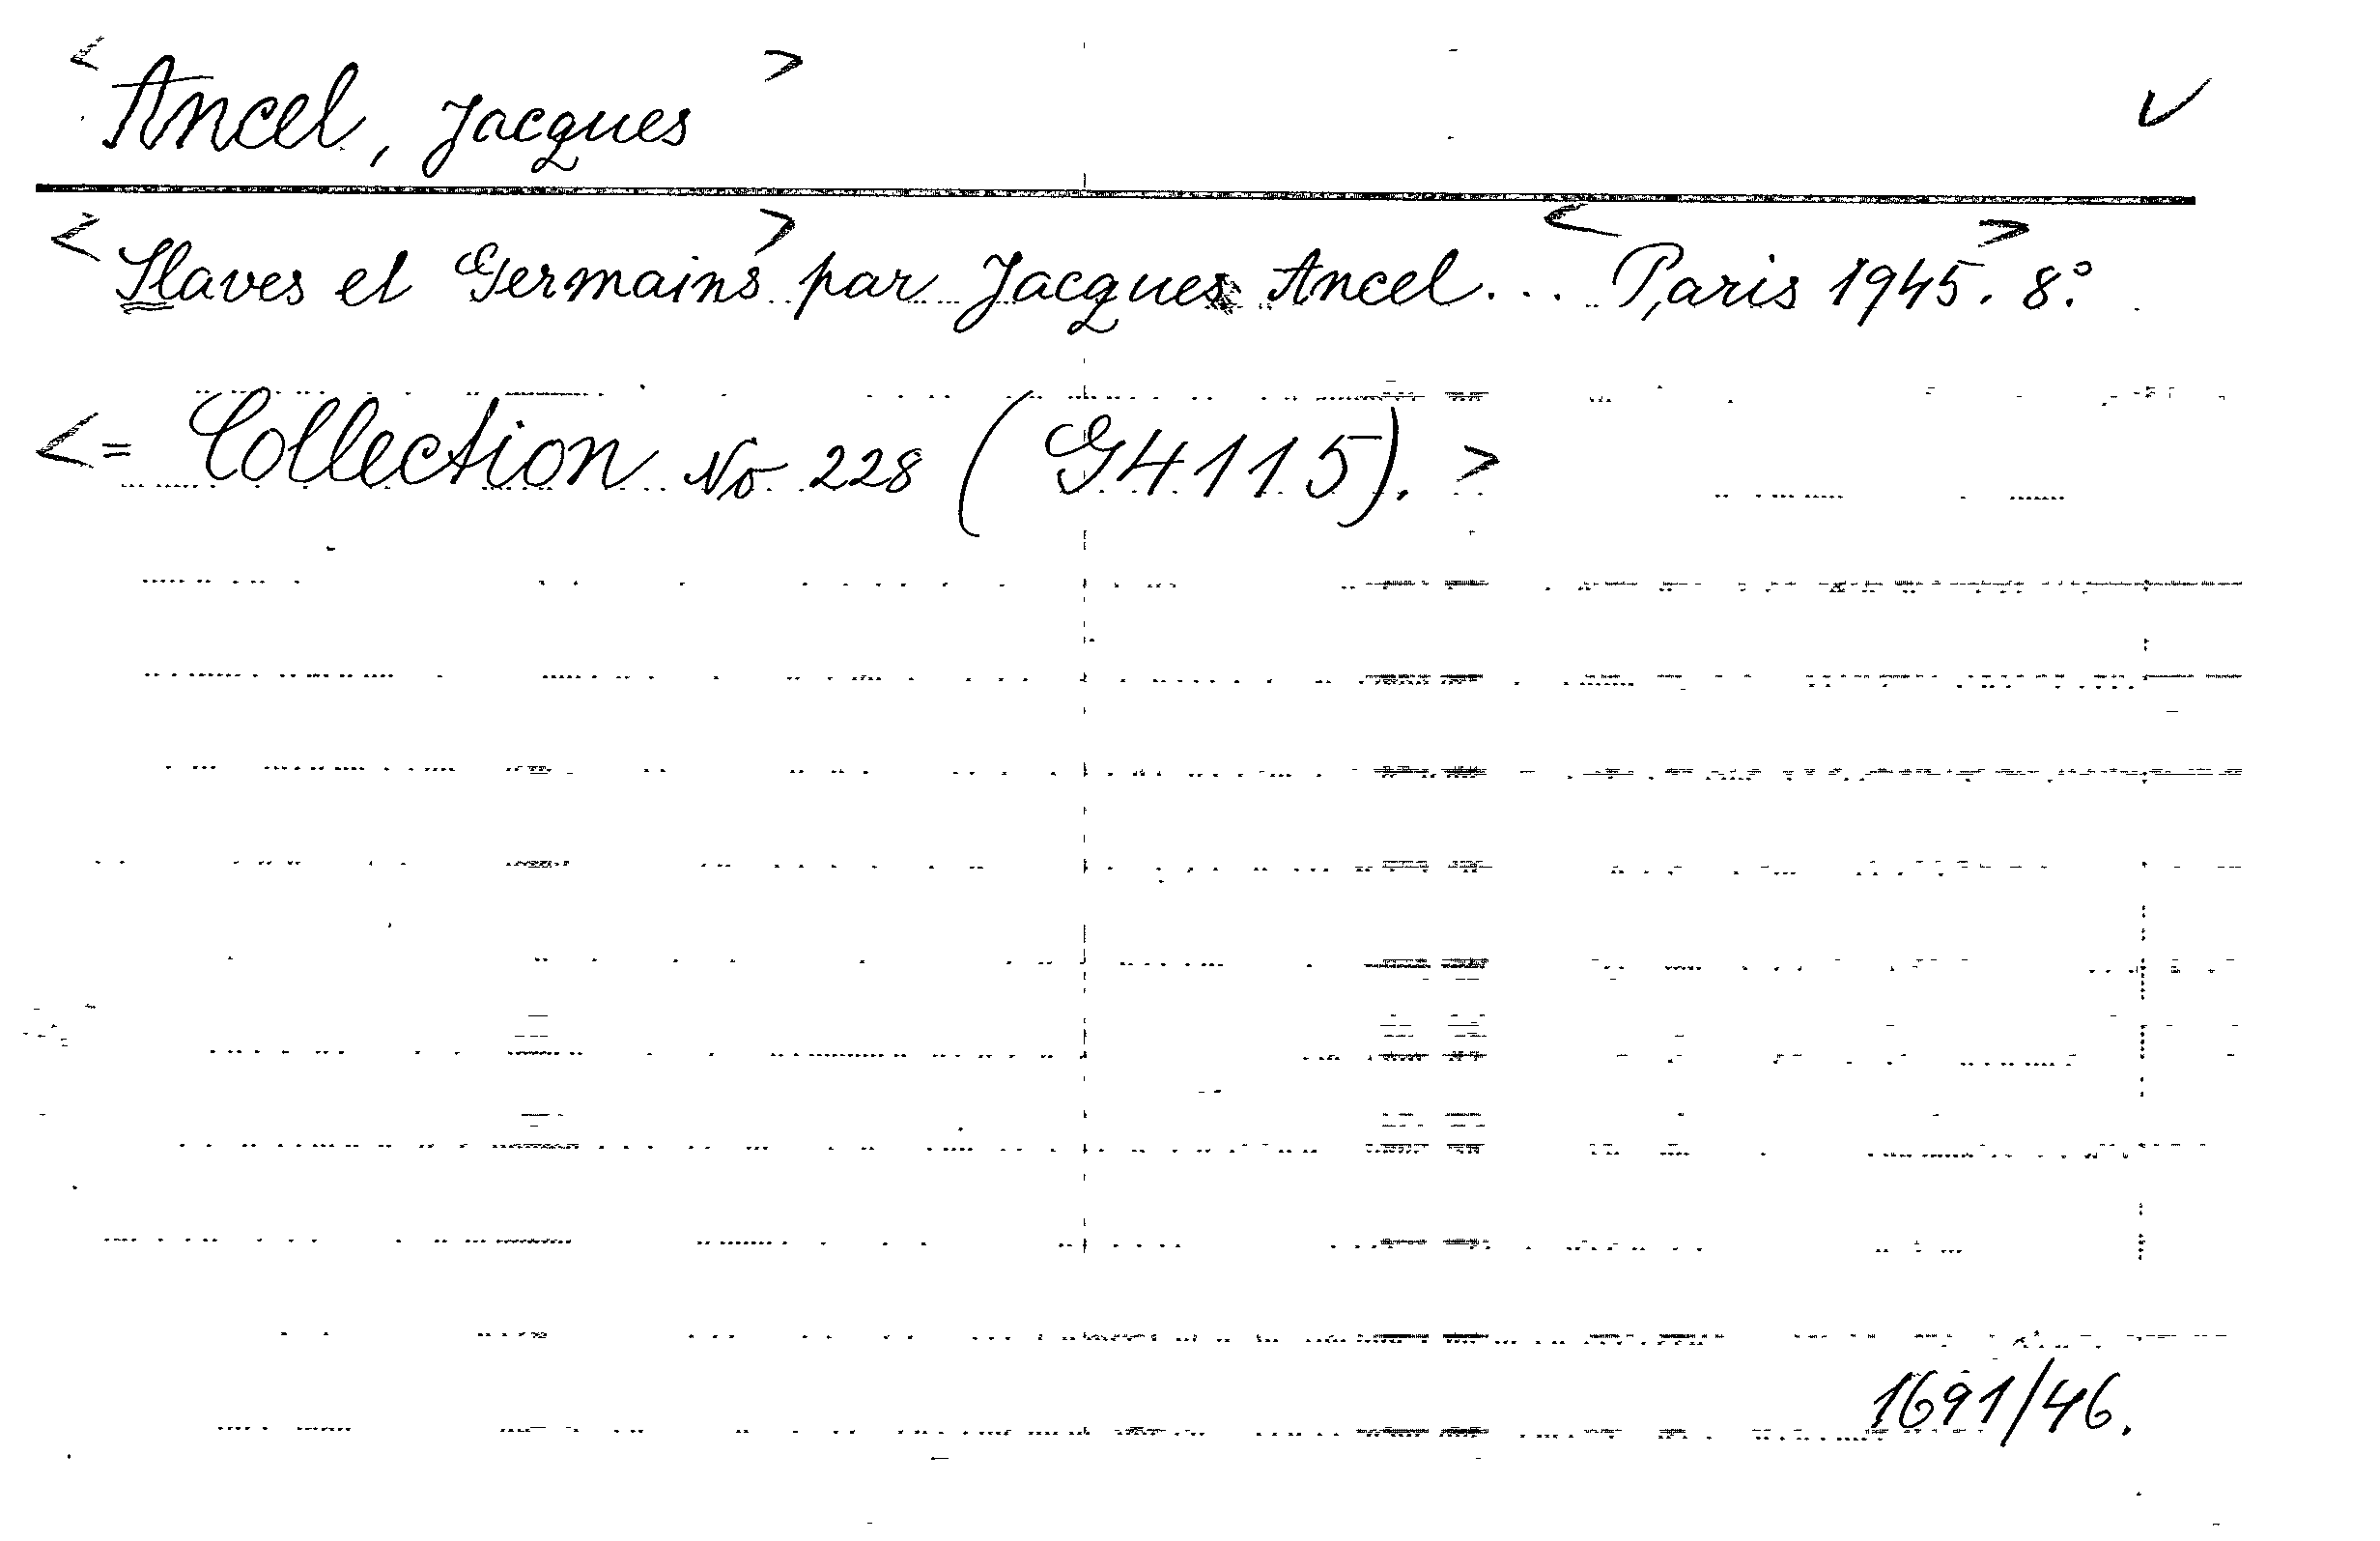 <Ancel, Jacques> ✓
<Slaves et Germains> par Jacques Ancel... <Paris 1945>. 8.°
<= Collection No 228 (G4115).>
1691/46.